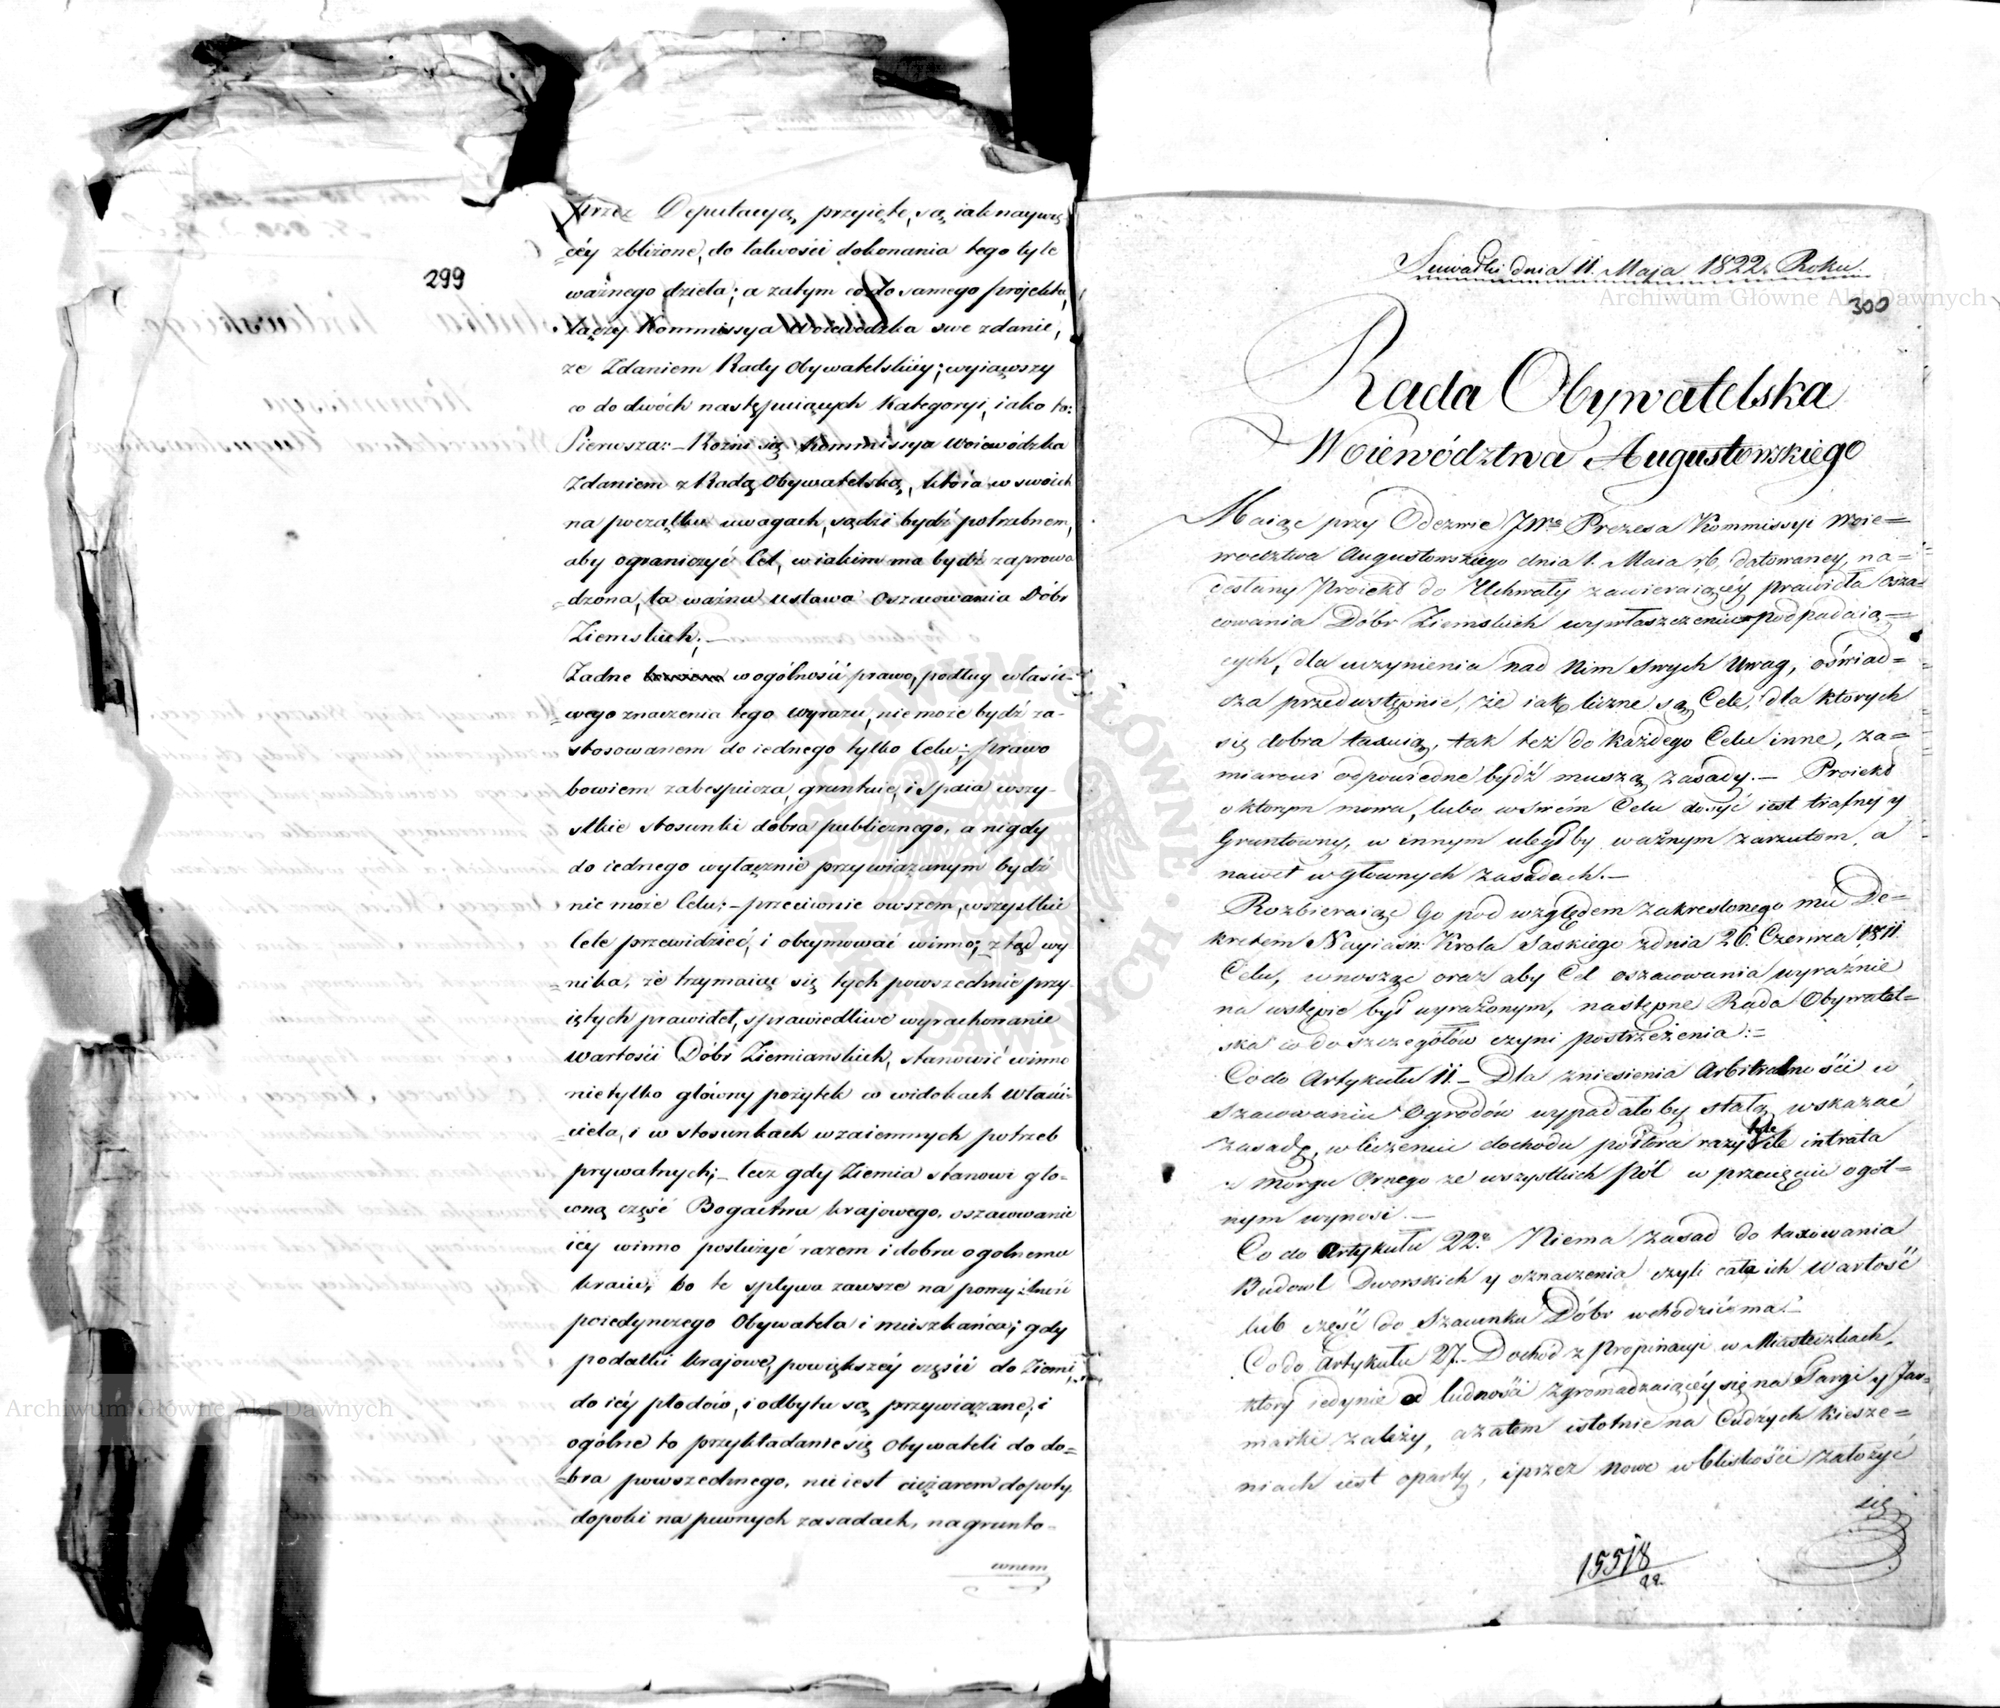 299
przez Deputacyą przyięte, są iak naywię
céy zbliżone, do łatwości dokonania tego tyle
ważnego dzieła; a zatym co do samego projektu,
łączy Kommissya Woiewódzka swe zdanie,
ze Zdaniem Rady Obywatelskiéy; wyiąwszy
co do dwóch następuiących Kategoryi, iako to:
Pierwsza: – Rożni się Kommissya Woiewódzka
Zdaniem z Radą Obywatelską, która w swoich
na początku uwagach, sądzi bydź potrzebnem,
aby ograniczyć Cel, w iakim ma bydź zaprowa
dzona, ta ważna ustawa Oszacowania Dóbr
Ziemskich. –
Żadne bowiem w ogólności prawo, podług właści-
wego znaczenia tego wyrazu, nie może bydź za-
stosowanem do iednego tylko Celu; prawo
bowiem zabespiecza, gruntuie, i spaia wszy-
stkie stosunki dobra publicznego, a nigdy
do iednego wyłącznie przywiązanym bydź
nie może Celu; – przeciwnie owszem, wszystkie
Cele przewidzieć, i obeymować winno; z tąd wy
nika, że trzymaiąc się tych powszechnie przy-
iętych prawideł, sprawiedliwe wyrachowanie
wartości Dóbr Ziemiańskich, stanowić winno
nietylko główny pożytek w widokach Właści-
ciela, i w stosunkach wzaiemnych potrzeb
prywatnych; – lecz gdy Ziemia stanowi głó-
wną część Bogactwa krajowego, oszacowanie
iéy winno posłużyć razem i dobru ogólnemu
kraiu, bo te spływa zawsze na pomyślność
poiedynczego Obywatela i mieszkańca; gdy
podatki krajowe, powiększéy części do Ziemi,
do iéy płodów, i odbytu są przywiązane, i
ogólne to przykładanie się Obywateli do do=
=bra powszechnego, nie iest ciężarem dopoty,
dopóki na pewnych zasadach, na grunto-
wnem
Suwałki dnia 11. Maja 1822. Roku.
300
Rada Obywatelska
Woiewództwa Augustowskiego
Maiąc przy Odezwie JWo Prezesa Kommissyi Woie=
wodztwa Augustowskiego dnia 1. Maia rb. datowaney, na=
desłany Proiekt do Uchwały zawieraiącéy prawidła osza=
cowania Dóbr Ziemskich wywłaszczeniu podpadaią=
cych, dla uczynienia nad Nim swych Uwag, oświad=
cza przedwstępnie, że iak liczne są Cele, dla których
się dobra taxuią, tak też do każdego Celu inne, za=
miarowi odpowiedne bydź muszą zasady. – Proiekt
o którym mowa, lubo w swém Celu dosyć iest trafny y
Gruntowny, w innym uległby ważnym zarzutom, a
nawet w głównych zasadach. –
Rozbieraiąc Go pod względem zakreślonego mu De=
kretem Nayiaśn: Krola Saskiego z dnia 26. Czerwca 1811.
Celu, wnosząc oraz aby Cel oszacowania wyraźnie
na wstępie był wyrażonym, następne Rada Obywatel=
ska co do szczegółów czyni postrzeżenia: =
Co do Artykułu 11. – Dla zniesienia Arbitralności w
Szacowaniu Ogrodów wypadałoby stałą wskazać
zasadę, w liczeniu dochodu półtora razy tyle ile intrata
z Morgu Ornego ze wszystkich Pól w przecięciu ogól=
nym wynosi. –
Co do Artykułu 22o Niema zasad do taxowania
Budowl Dworskich y oznaczenia czyli cała ich Wartość
lub część do Szacunku Dóbr wchodzić ma. –
Co do Artykułu 27. – Dochod z Propinacyi w Miasteczkach,
który iedynie od ludności zgromadzaiącéy się na Targi y Jar=
marki zależy, a zatem istotnie na Cudzych kiesze=
niach iest oparty, i przez nowe w bliskości założyć
się
15518
22.
Archiwum Główne Akt Dawnych
Archiwum Główne Akt Dawnych
ARCHIWUM GŁÓWNE AKT DAWNYCH